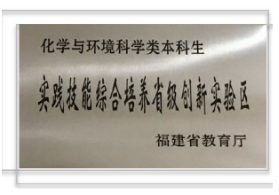 化学与环境科学类本科生
实践技能综合培养省级创新实验区
福建省教育厅